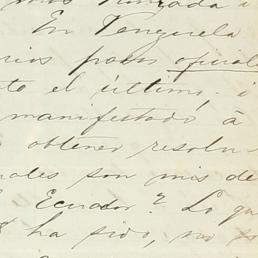 En Venezuela
rios pasos oficial
te el último. i
manifestado á
obtener resolu-
ales son mis de
Ecuador? Lo qu
ha sido, no